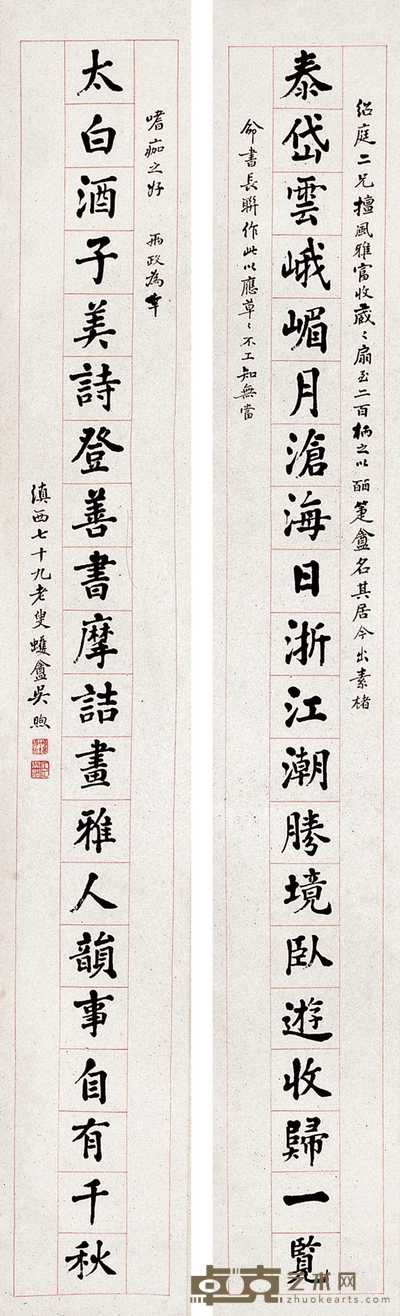 泰岱雲峨嵋月滄海日浙江潮勝境臥遊收歸一覽
太白酒子美詩登善書摩詰畫雅人韻事自有千秋
紹庭二兄擅風雅富收藏〻扇至二百柄之以皕箑盦名其居今出素楮
命書長聯作此以應草〻不工知無當
嗜痂之好 兩政為幸
滇西七十九老叟蠖盦吳煦
卓克艺术网
zhuokearts.com